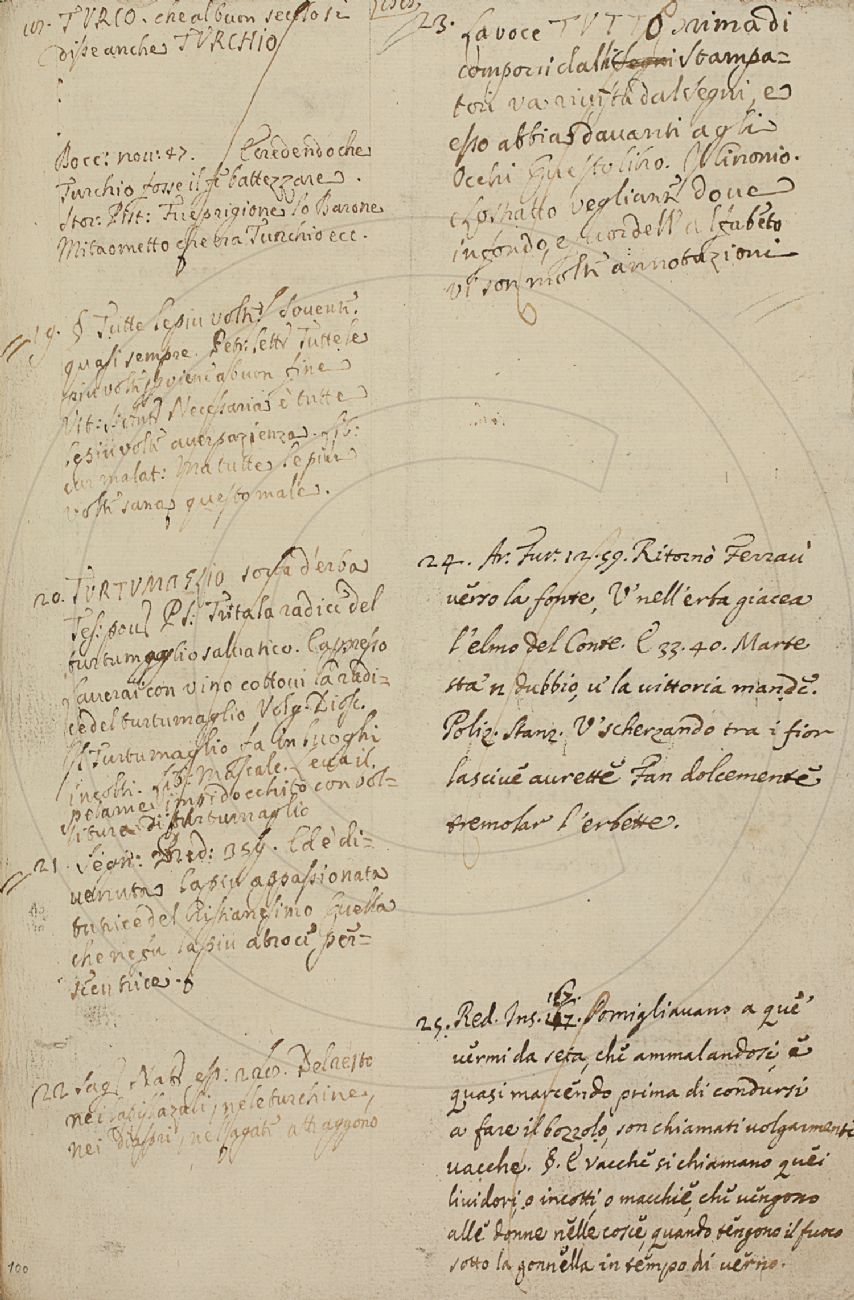 TURCO. che al buon secolo si
disse anche TURCHIO
Bocc: nov: 47. Credendo che
Turchio fosse il fe battezzare.
Stor: Pist: Fue prigione lo Barone
Mitaometto che era Turchio ecc.
19. § Tutte le più volte Sovente.
quasi sempre. Petr: lett: Tutte le
più volte pviene a buon fine
Vit: Necessaria è tutte
le più volte aver pazienza.
cur malat: Ma tutte le più
volte sana questo male.
20. TURTUMAGLIO sorta d'erba
Tes: pov: P.S: Trita la radice del
turtumaglio salvatico. E appresso
l'averai con vino cottoui la radi=
ce del turtumaglio Volg. Diosc.
Il Turtumaglio fa in luoghi
incolti. Lib: Mascalc. e va il
pelame impidocchito con vol=
situra di turtumaglio
21. Segn: Pred: 359. Ed è di=
venuta la più appassionata
tutrice del Cristianesimo Quella
che ne fu la più atroce per=
secutrice.
22 Sag. Nat. esp: 226. Del resto
nei lapislazali, nele turchine,
nei Diaspri, nell'agate attaggono
23. La voce TUTTO prima di
comporsi dalli Segni Stampa=
tori va rivista dal Segni, e
esso abbia davanti agli
Occhi Questo libro. Il Cinonio.
e soprattto vegliante dove
in fondo, e fuor dell'alfabeto
vi son molte annotazioni
24. Ar. Fur. 12. 59. Ritornò Ferraù
verso la fonte, U' nell'erba giacea
l'elmo del Conte. E 33. 40. Marte
sta'n dubbio, u' la vittoria mande.
Poliz. Stanz. U' scherzando tra i fior
lascive aurette Fan dolcemente
tremolar l'erbette.
25. Red. Ins. 167. Pomigliavano a que'
vermi da seta, che ammalandosi, e
quasi marcendo prima di condursi
a fare il bozzolo, son chiamati volgarmente
vacche. §. E vacche si chiamano quei
lividori, o incotti, o macchie, che vengono
alle donne nelle coscie, quando tengono il fuoco
sotto la gonnella in tempo di verno.
100